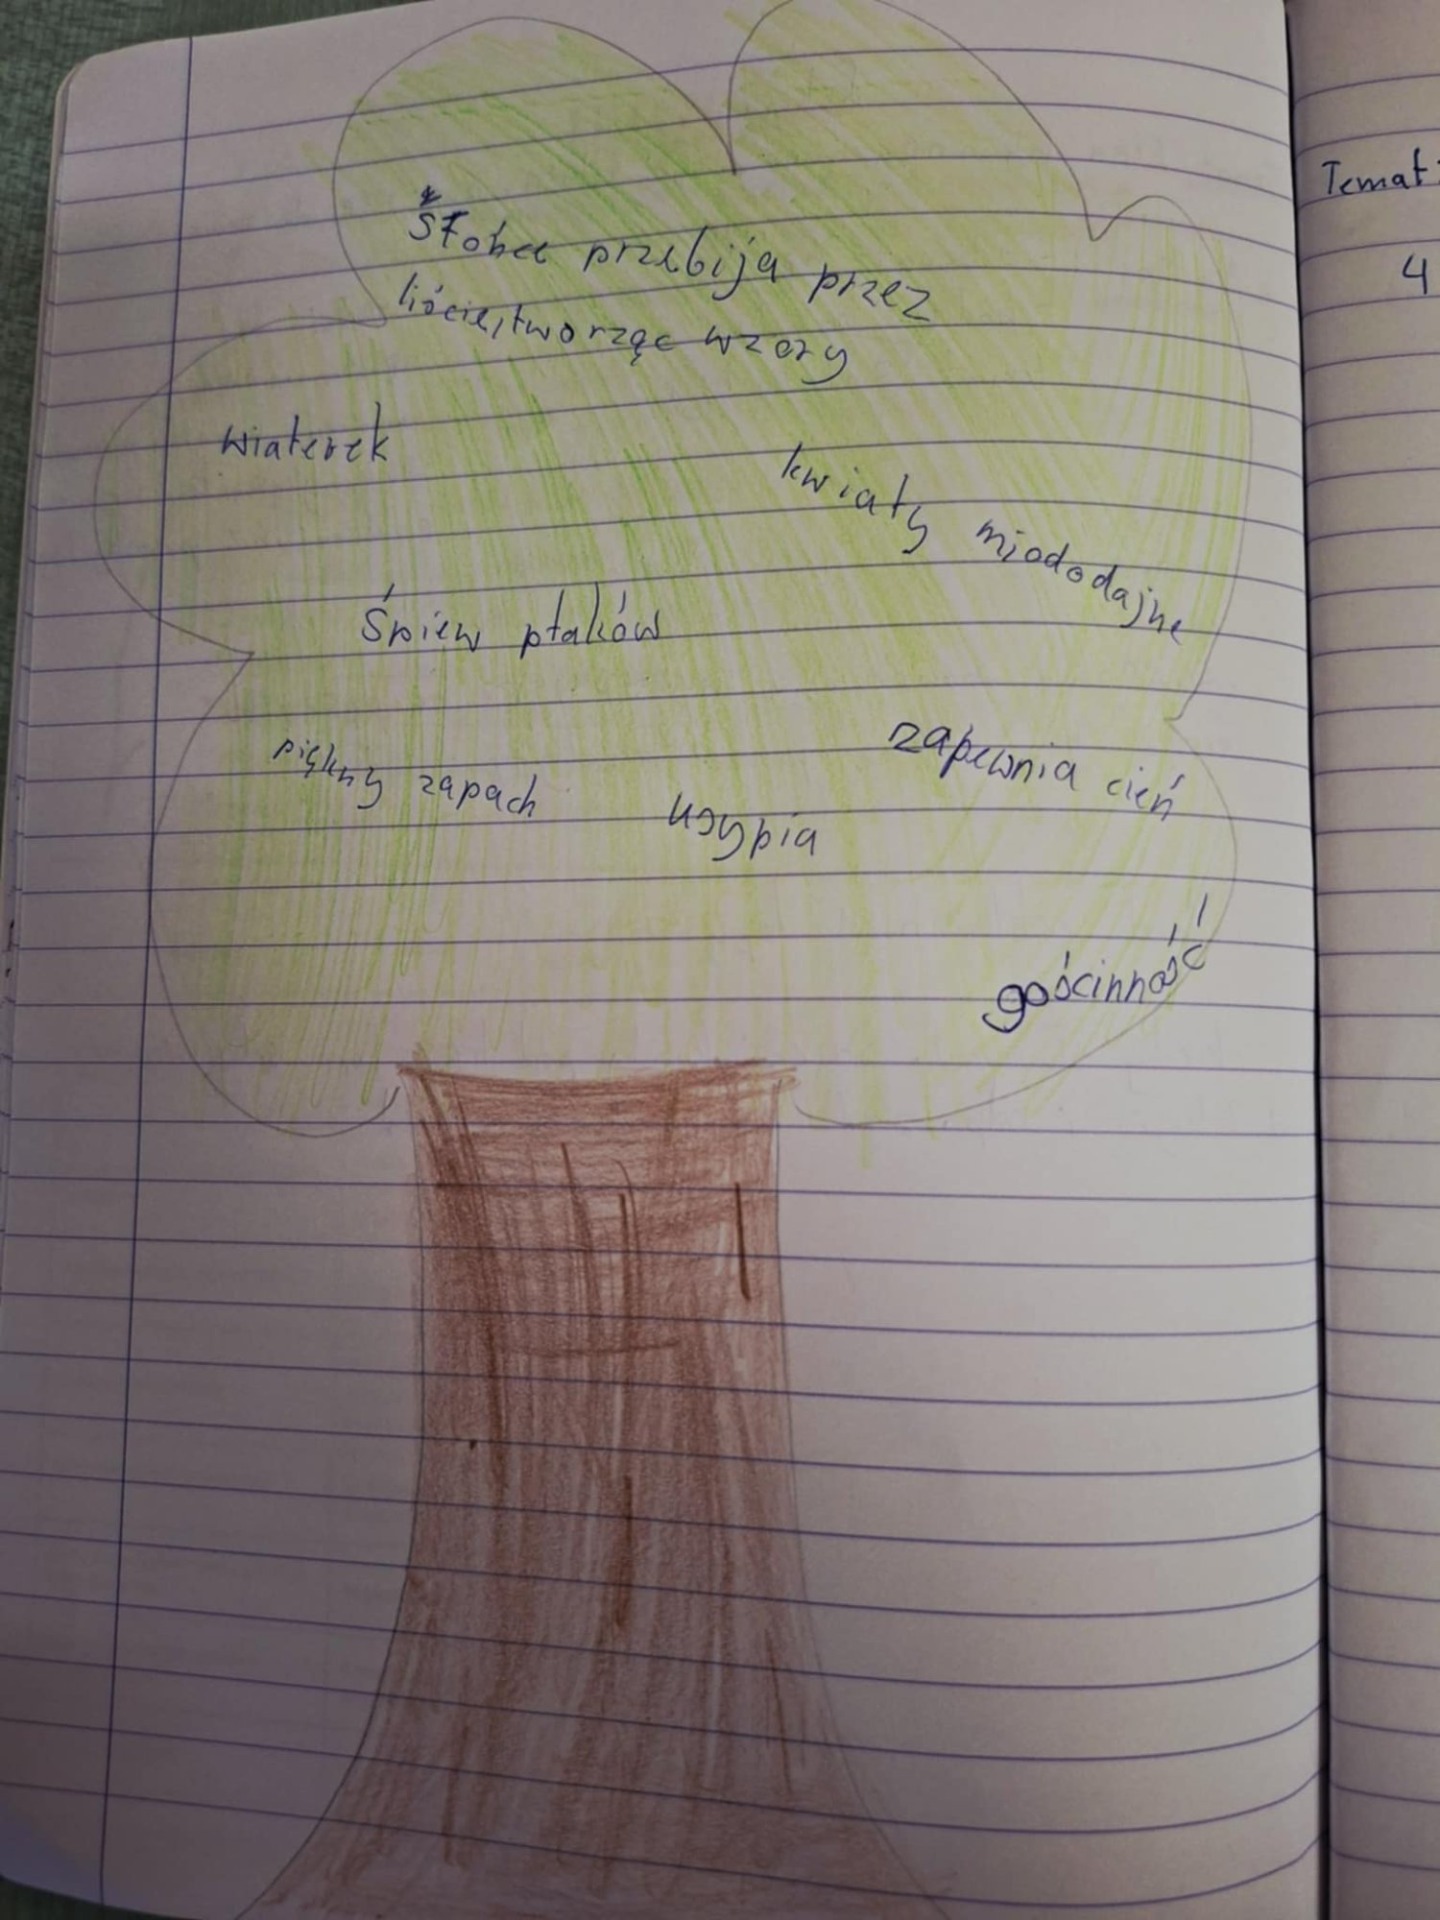 Słońce przebija przez
liście, tworząc wzory
wiaterek
kwiaty miododajne
Śpiew ptaków
piękny zapach
usypia
zapewnia cień
gościnność
Temat:
4